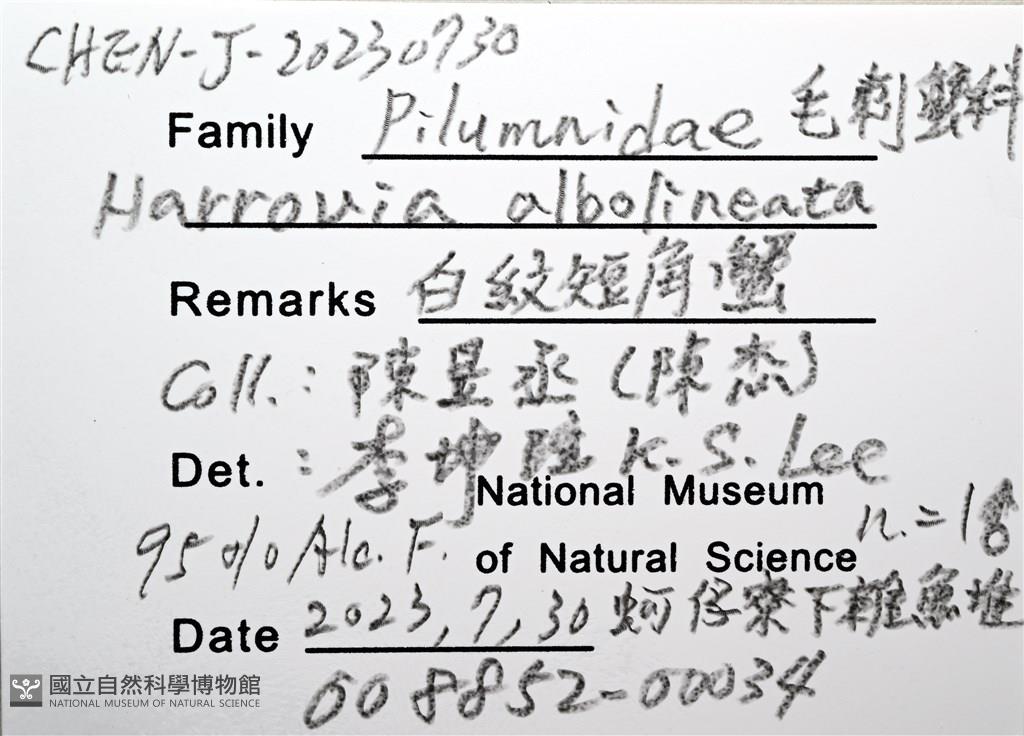 CHEN-J-20230730
Family Pilumnidae 毛刺蟹科
Harrovia albolineata
Remarks 白紋短角蟹
Coll.: 陳昱丞(陳杰)
Det.: 李坤 K.S. Lee
National Museum
n.=1
95% Alc. F. of Natural Science
Date 2023,7,30 蚵仔寮下雜魚堆
008852-00034
國立自然科學博物館
NATIONAL MUSEUM OF NATURAL SCIENCE